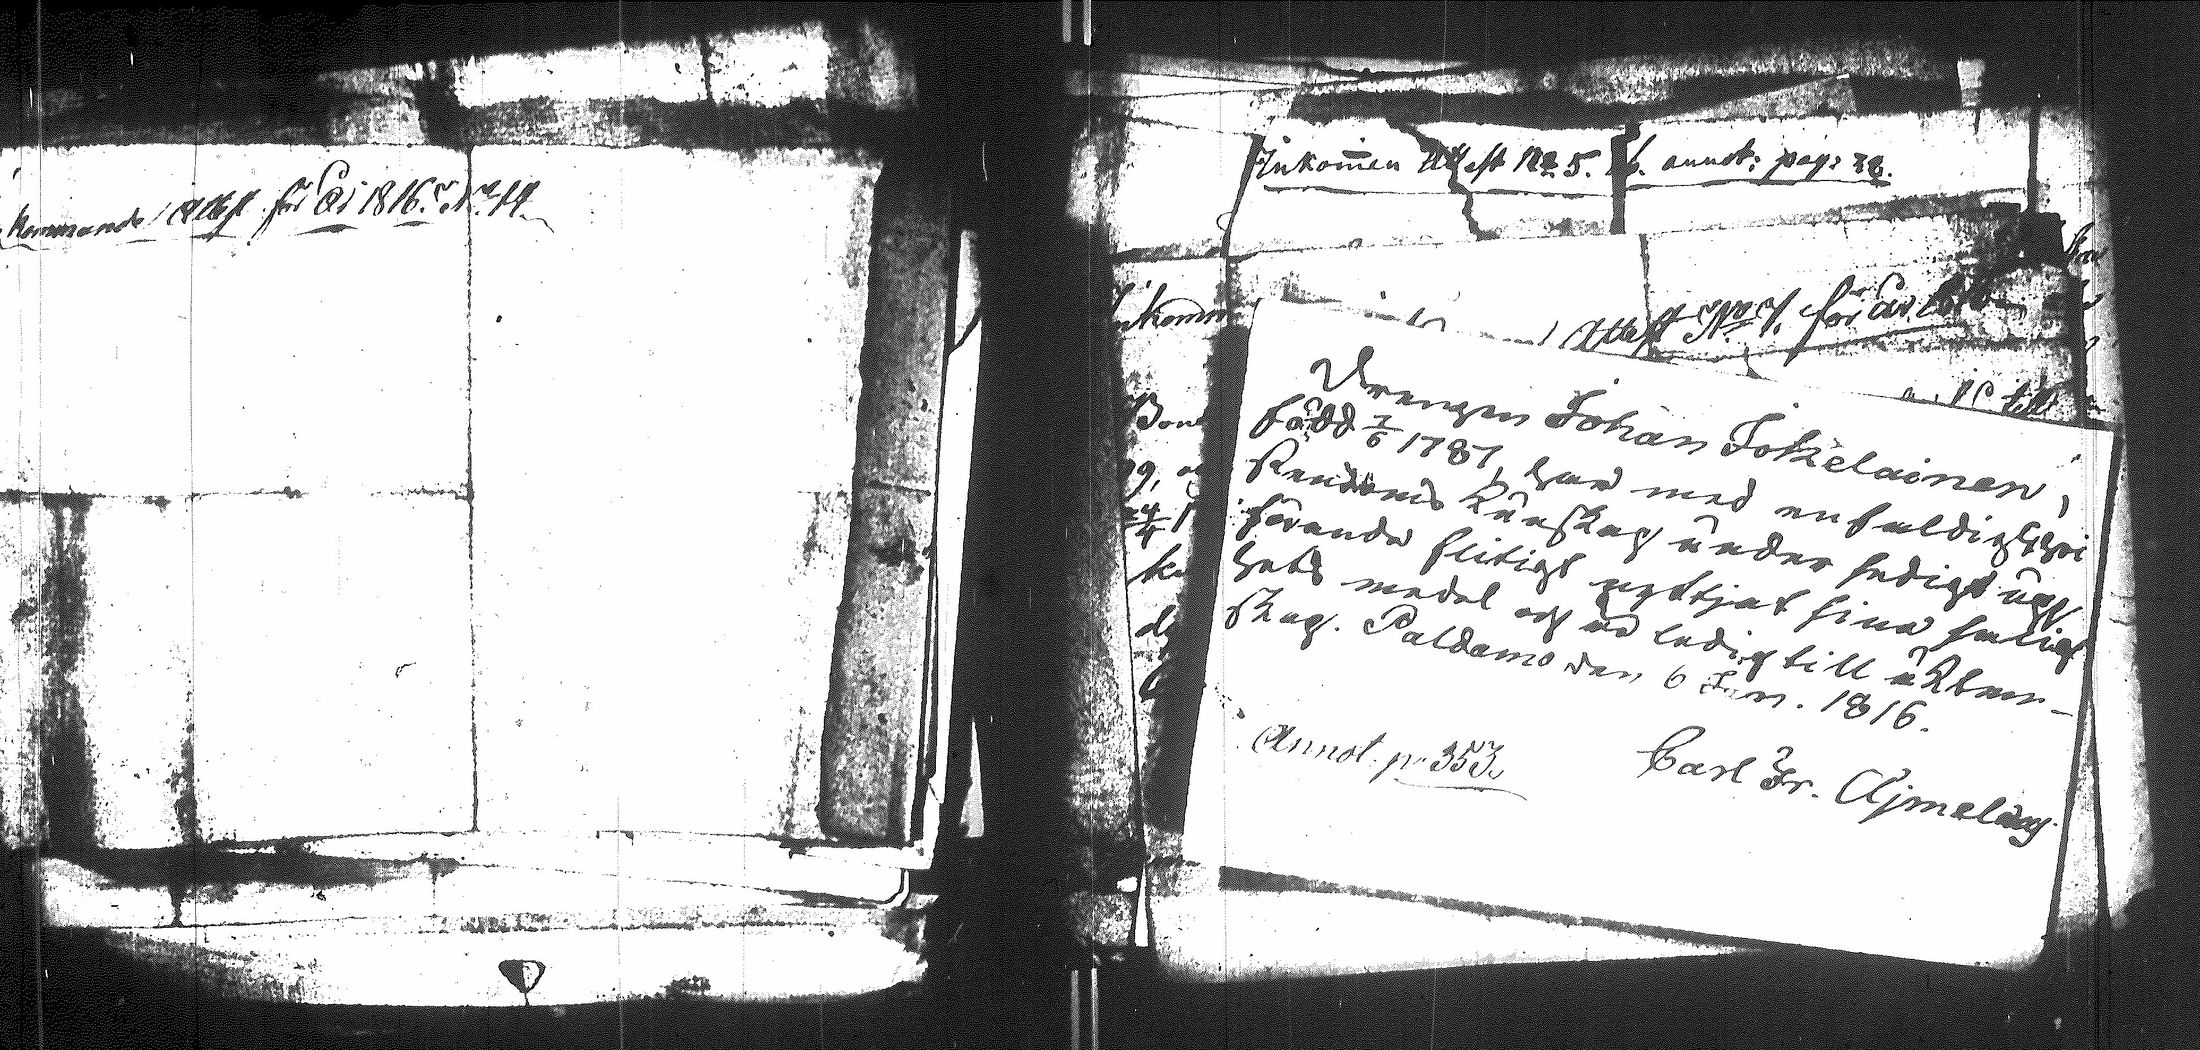 kommande Attest för år 1816. No 14.
Inkommen Attest No 5. annot: pag: 38.
inkomm
Attest No 7. för år
till
Drengen Johan Jokelainen,
född 7/6 1787, har med en fældig Chri
stendoms Kunskap under sedigt upp
förande flitigt nyttjat sina salig
hets medel och är ledig till ekten-
skap. Paldamo den 6 Jan. 1816.
Annot. p. 353.
Carl Fr. Ajmelæus